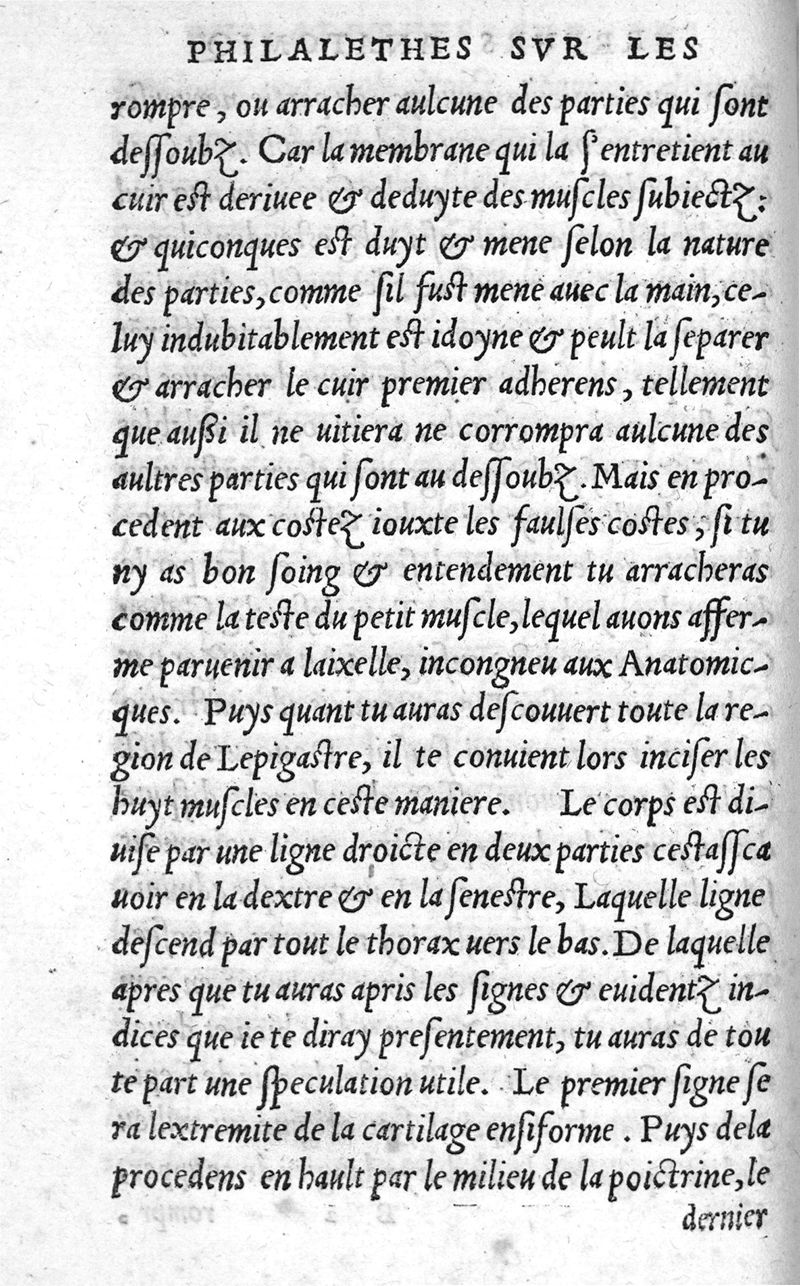 PHILALETHES SVR LES
rompre, ou arracher aulcune des parties qui ſont
deſſoubz. Car la membrane qui la ſ'entretient au
cuir est deriuee & deduyte des muſcles ſubiectz:
& quiconques est duyt & mene ſelon la nature
des parties, comme ſil fust mene auec la main, ce-
luy indubitablement est idoyne & peult la ſeparer
& arracher le cuir premier adherens, tellement
que außi il ne uitiera ne corrompra aulcune des
aultres parties qui ſont au deſſoubz. Mais en pro-
cedent aux costez iouxte les faulſes costes, ſi tu
ny as bon ſoing & entendement tu arracheras
comme la teste du petit muſcle, lequel auons affer-
me paruenir a laixelle, incongneu aux Anatomic-
ques. Puys quant tu auras deſcouuert toute la re-
gion de Lepigastre, il te conuient lors inciſer les
huyt muſcles en ceste maniere. Le corps est di-
uiſe par une ligne droicte en deux parties cestaſſca
uoir en la dextre & en la ſenestre, Laquelle ligne
deſcend par tout le thorax uers le bas. De laquelle
apres que tu auras apris les ſignes & euidentz in-
dices que ie te diray preſentement, tu auras de tou
te part une ſpeculation utile. Le premier ſigne ſe
ra lextremite de la cartilage enſiforme. Puys dela
procedens en hault par le milieu de la poictrine, le
dernier